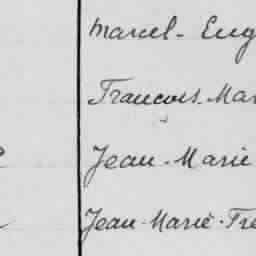 Marcel - Eug
Francois - Mar
Jean - Marie
Jean - Marie - Fra